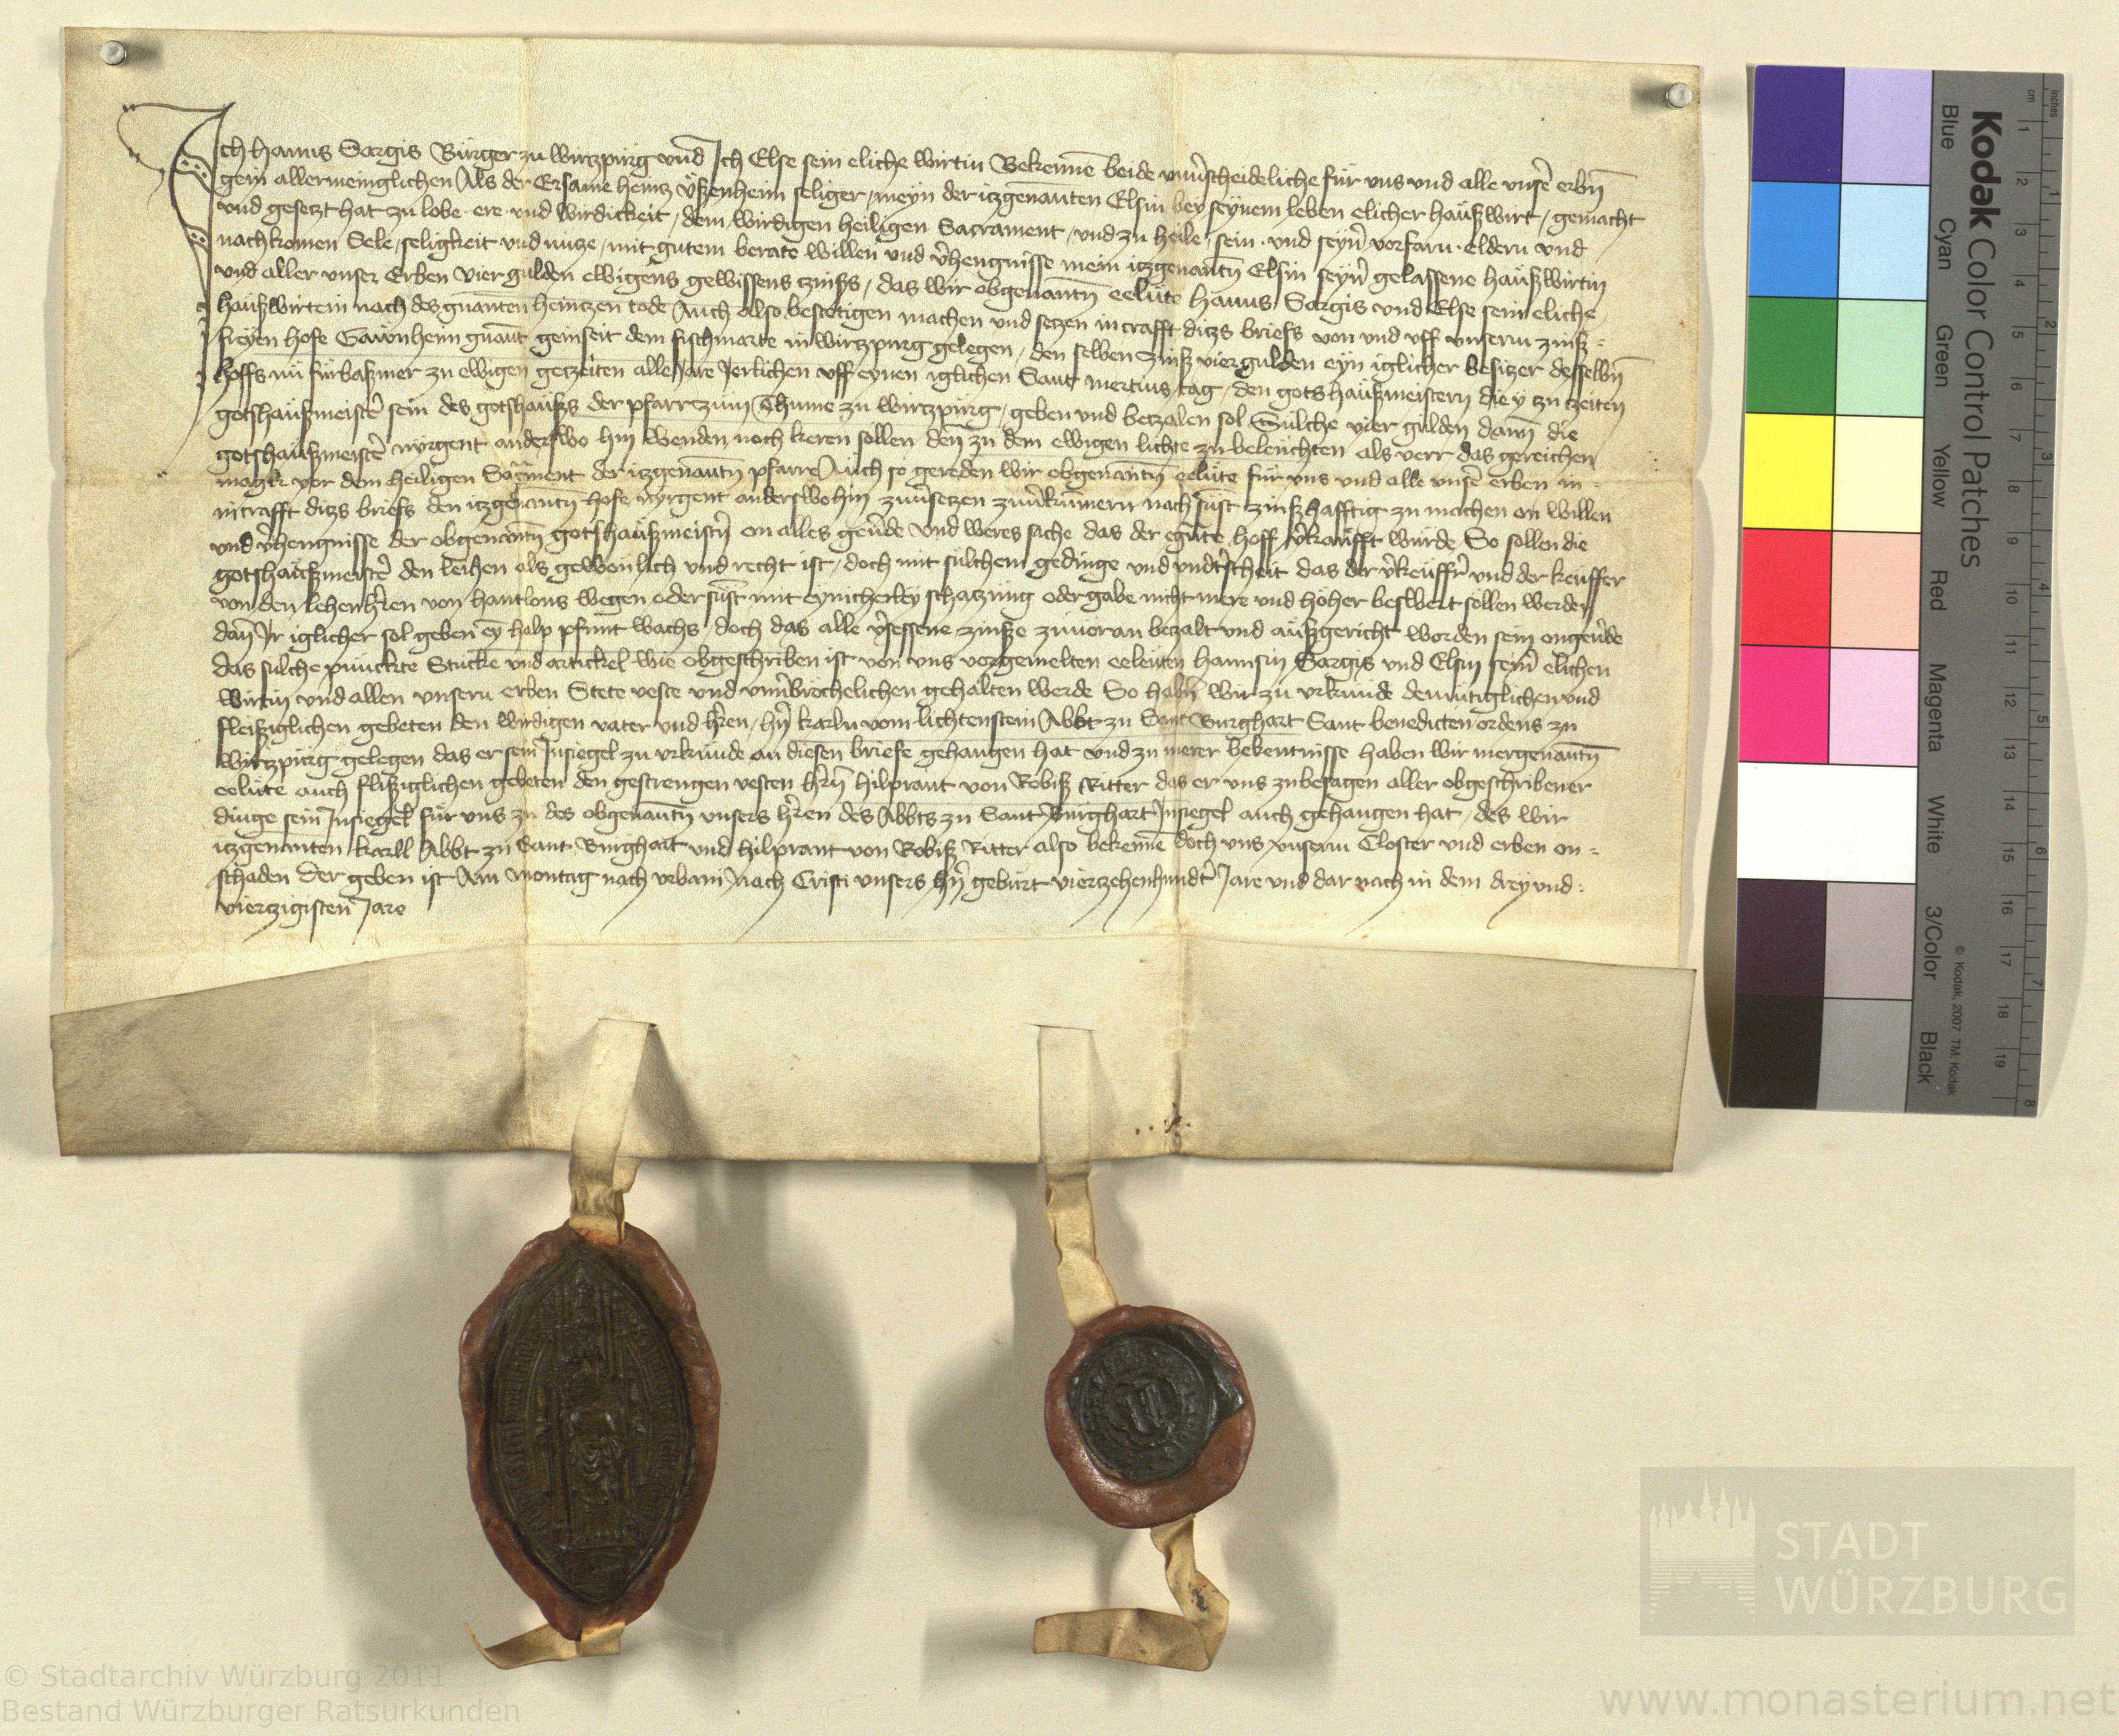 Ich Hanns Sorgis Burger zu wirtzpurg und Ich Else sein eliche wirtin Bekenne beide unuerscheideliche für uns und alle unser erbn
gein allermeinglichen Als der Ersame heintz seliger / meyn der itzgenanten Elsin bey seynem leben elicher haußwirt / gemacht
und gesetzt hat zu lobe ere und wirdickeit / dem wirdigen heiligen Sacrament / und zu heile / sein und seyner vorfarn eldern und
nachkomen Sele / seligkeit und nutze / mit gutem berate willen und verhengnisse mein itzgenantn Elsin seyner gelassene haußwirtin
und aller unser Erben vier gulden ewigens gewissens zinßs / das wir obgenantn eelute Hanns Sorgis und Else sein eliche
haußwirtein nach des gnanten heintzen tode Auch also bestetigen machen und setzen in crafft ditzs briefs von und uff unserm zinß-
freyen hofe gnant geinseit dem fischmarte in wirtzpurg gelegen / den selben zinß vier gulden eyn iglicher besitzer desselbn
hoffs nu fürbaßmer zu ewigen getzeiten alle Jare Jerlichen uff eynen iglichen Sant mertins tag / den gotshaußmeistern die y zu zeiten
gotshaußmeister sein des gotshaußs der pfarre zum Thume zu wirtzpurg / geben und betzalen sol Sulche vier gulden dann die
gotshaußmeister nyrgent anderswo hin wenden noch keren sollen denn zu dem ewigen lichte zu beleuchten als verr das gereichen
magk vor dem heiligen Sacrament der itzgenantn pfarre Auch so gereden wir obgenantn eelute für uns und alle unser erben in-
in crafft ditzs briefs den itzgenantn hofe nyrgent anderswohin zuuersetzen zuuerkummern nach sust zinßhafftig zu machen on willen
und verhengnisse der obgenantn gotshaußmeistern on alles geuerde Und weres sache das der egnte hoff verkaufft wurde So sollen die
gotshaußmeister den leihen als gewonlich und recht ist / doch mit sulchem gedinge und underscheit das der verkeuffer und der keuffer
von den lehenherren von hantlons wegen oder sust mit eynicherley schatzung oder gabe nicht mere und hoher beswert sollen werden
dann Ir iglicher sol geben ey halp pfunt wachs / doch das alle versessene zinße zuuoran betzalt und außgericht worden sein ongeuerde
das sulche punckte Stucke und artickel wie obgeschriben ist von uns vorgemelten eeleuten Hannsin Sorgis und Elsin seiner elichen
wirtin und allen unsern erben Stete veste und unuerbrochelichen gehalten werde So habn wir zu urkunde demutiglichen und
fleißiglichen gebeten den wirdigen vater und herren / hern karln vom lichtenstein Abbt zu Sant Burghart Sant benedicten ordens zu
wirtzpurg gelegen das er sein Insiegel zu urkunde an diesen briefe gehangen hat und zu merer bekentnisse haben wir mergenantn
eelute auch flißiglichen gebeten den gestrengen vesten hern hilprant von Robiß Ritter das er uns zubesagen aller obgeschribener
dinge sein Insiegel für uns zu des obgenantn unsers herren des Abbts zu Sant Burghart Insiegel auch gehangen hat / des wir
itzgenanten karll Abbt zu Sant Burghart und hilprant von Robiß Ritter also bekenne doch uns unserm Closter und erben on-
schaden Der geben ist Am montag nach urbani nach Cristi unsers hern geburt viertzehenhundert Jare und dar nach in dem drey und-
viertzigisten Jare
Kodak Color Control Patches
Blue Cyan Green Yellow Red Magenta White 3/Color Black
© Kodak, 2007 TM: Kodak
cm 1 2 3 4 5 6 7 8 9 10 11 12 13 14 15 16 17 18 19
inches 1 2 3 4 5 6 7 8
STADT
WÜRZBURG
© Stadtarchiv Würzburg 2011
Bestand Würzburger Ratsurkunden
www.monasterium.net